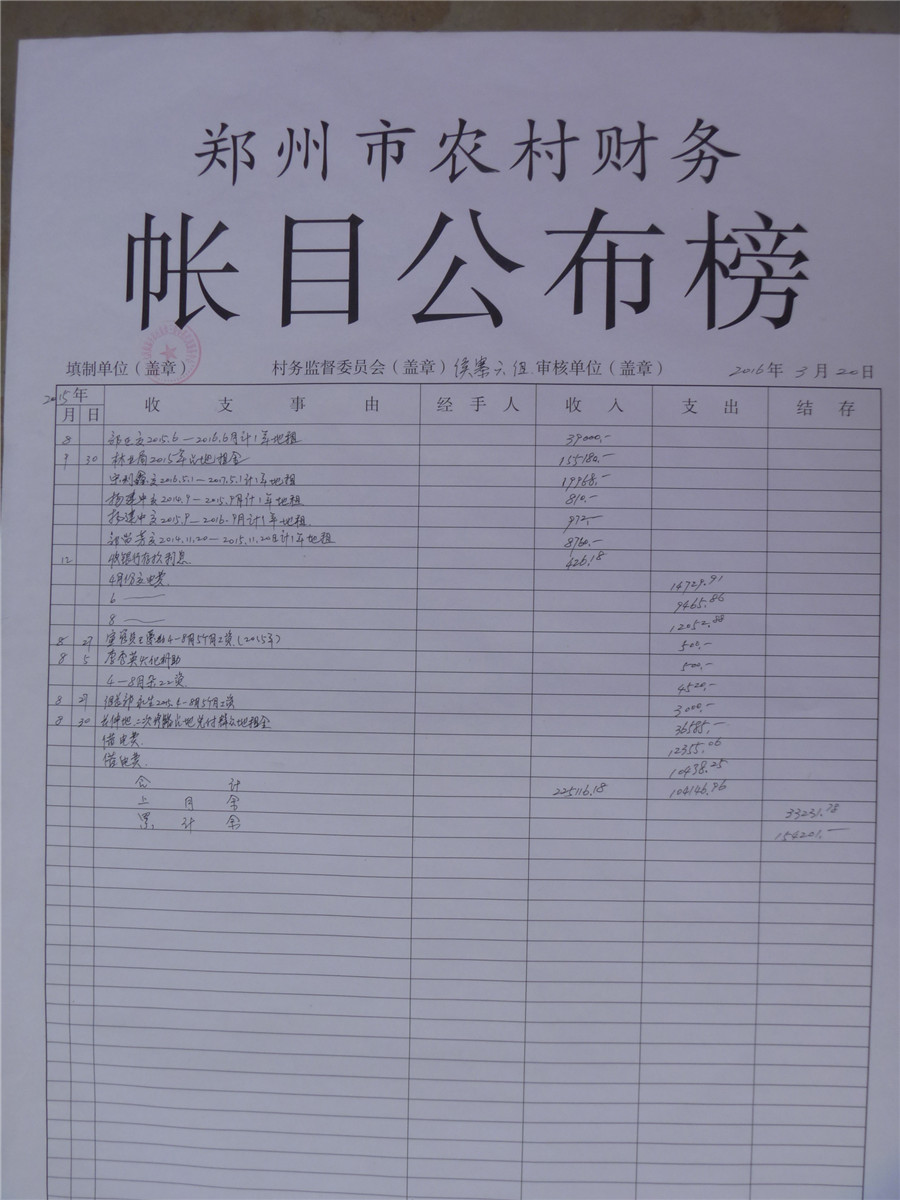 郑州市农村财务
帐目公布榜
填制单位（盖章） 村务监督委员会（盖章）侯寨六组 审核单位（盖章） 2016年 3月 20日
2015年 收支事由 经手人 收入 支出 结存
月 日
8 2015.6—2016.6月计1年地租 39000.-
9 30 林业局2015年占地租金 155180.-
2016.5.1—2017.5.1计1年地租 19968.-
杨建中交2014.9—2015.9月计1年地租 810.-
杨建中交2015.9—2016.9月计1年地租 972.-
交2014.11.20—2015.11.20日计1年地租 8760.-
12 收银行存款利息 426.18
4月份交电费 14729.91
6 —— 9465.86
8 —— 12052.88
8 27 4—8月5个月工资(2015年) 500.-
8 5 李秀英火化补助 500.-
4—8月杂工工资 4520.-
8 27 2015.4—8月5个月工资 3000.-
8 30 二次 占地兑付群众地租金 36585.-
借电费 12355.06
借电费 10438.25
合计 225116.18 104146.96
上月余 33231.78
累计余 154201.-